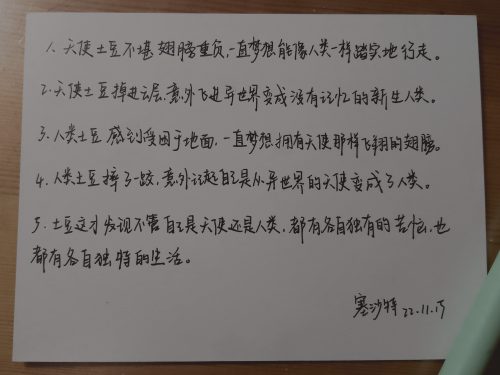 1. 天使土豆不堪翅膀重负,一直梦想能像人类一样踏实地行走。
2. 天使土豆掉进云层,意外飞进异世界变成没有记忆的新生人类。
3. 人类土豆感到受困于地面,一直梦想拥有天使那样飞翔的翅膀。
4. 人类土豆摔了一跤,意外记起自己是从异世界的天使变成了人类。
5. 土豆这才发现不管自己是天使还是人类,都有各自独有的苦恼,也
都有各自独特的生活。
塞沙特 22.11.15